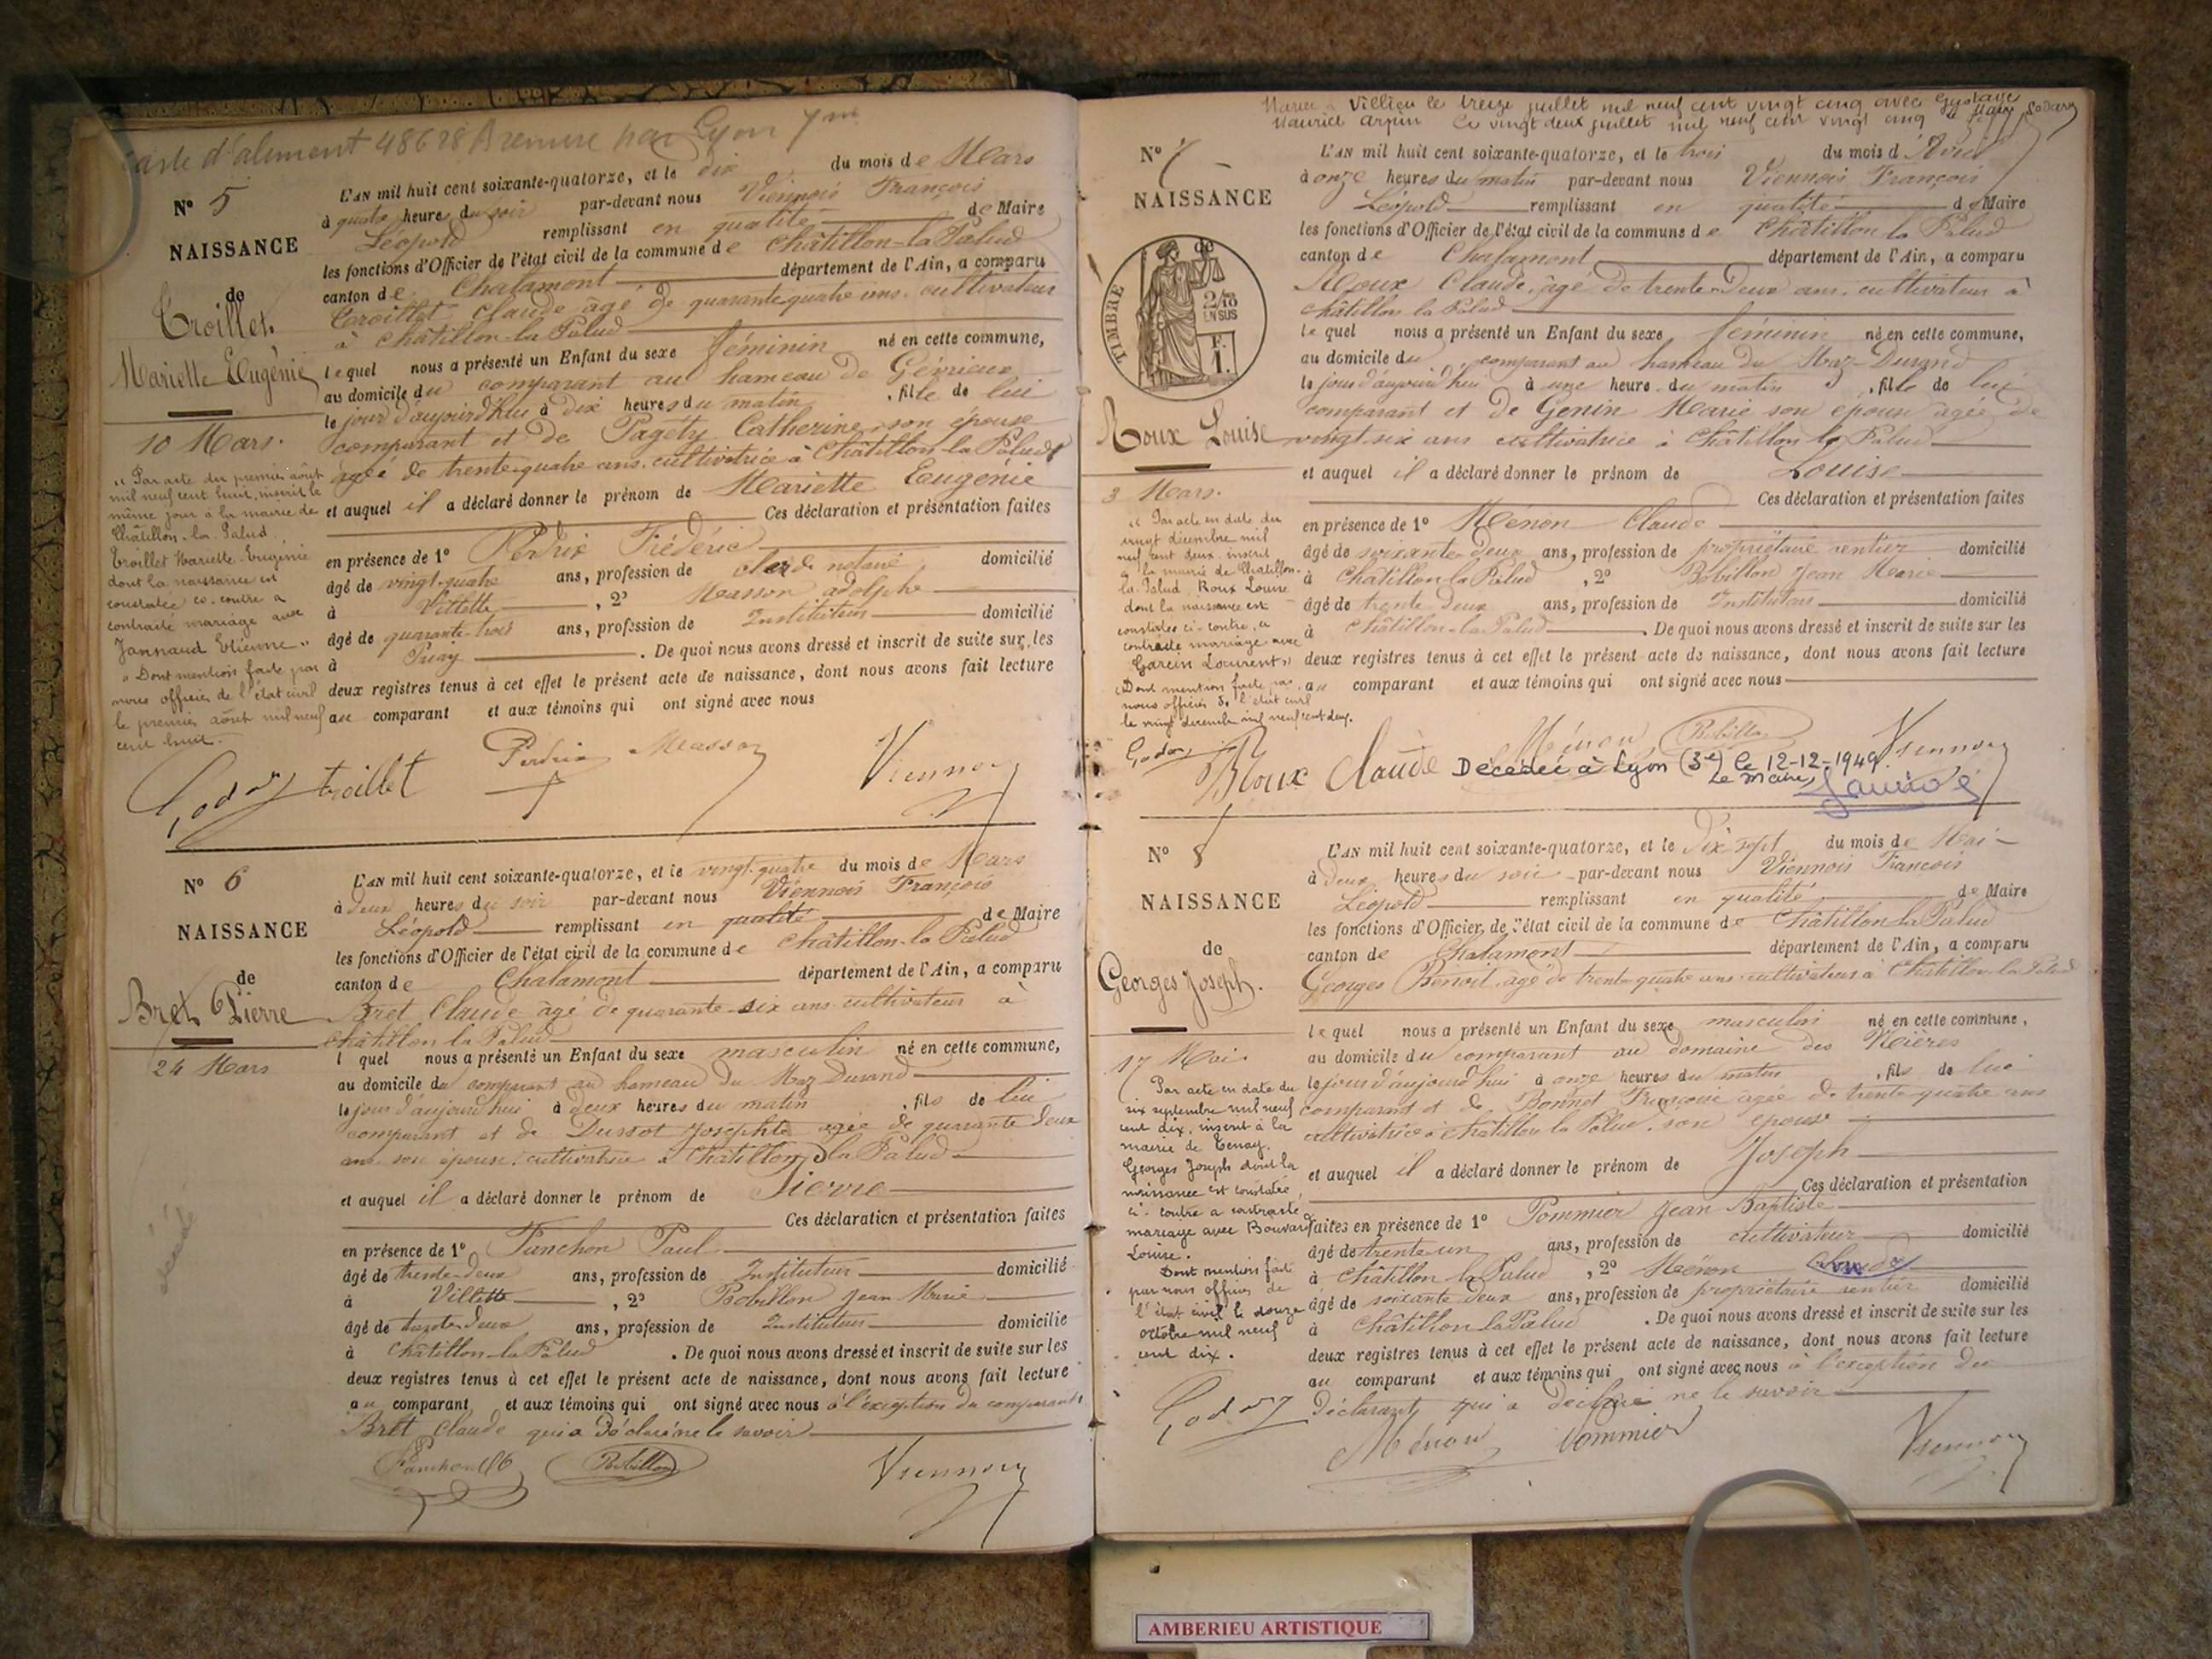 Carte d'aliment 48628 par Lyon 7me
N° 5
NAISSANCE
de
Troillet
Mariette Eugénie
10 Mars.
"Par acte du premier août
mil neuf cent huit, inscrit le
même jour à la mairie de
Châtillon-la-Palud
Troillet Mariette Eugénie
dont la naissance est
constatée ci-contre a
contracté mariage avec
Jannaud Etienne"
"Dont mention faite par
nous officier de l'état civil
le premier août mil neuf
cent huit.
L'AN mil huit cent soixante-quatorze, et le dix du mois de Mars
à quatre heures du soir par-devant nous Viennois François
Léopold remplissant en qualité de Maire
les fonctions d'Officier de l'état civil de la commune de Châtillon-la-Palud
canton de Chalamont département de l'Ain, a comparu
Troillet Claude âgé de quarante-quatre ans, cultivateur
à Châtillon-la-Palud
lequel nous a présenté un Enfant du sexe féminin né en cette commune,
au domicile du comparant au hameau de Gévrieux
le jour d'aujourd'hui à dix heures du matin, fille de lui
comparant et de Pagéty Catherine son épouse
âgée de trente-quatre ans, cultivatrice à Châtillon la Palud
et auquel il a déclaré donner le prénom de Mariette Eugénie
Ces déclaration et présentation faites
en présence de 1° Perdrix Frédéric
âgé de vingt-quatre ans, profession de clerc de notaire domicilié
à Villette, 2° Masson Adolphe
âgé de quarante-trois ans, profession de Instituteur domicilié
à Priay. De quoi nous avons dressé et inscrit de suite sur les
deux registres tenus à cet effet le présent acte de naissance, dont nous avons fait lecture
au comparant et aux témoins qui ont signé avec nous
Godar troillet Perdrix Masson Viennois
N° 6
NAISSANCE
de
Bret Pierre
24 Mars
décédé
L'AN mil huit cent soixante-quatorze, et le vingt-quatre du mois de Mars
à deux heures du soir par-devant nous Viennois François
Léopold remplissant en qualité de Maire
les fonctions d'Officier de l'état civil de la commune de Châtillon-la-Palud
canton de Chalamont département de l'Ain, a comparu
Bret Claude âgé de quarante-six ans cultivateur à
Châtillon la Palud
l quel nous a présenté un Enfant du sexe masculin né en cette commune,
au domicile du comparant au hameau du Maz Durand
le jour d'aujourd'hui à deux heures du matin, fils de lui
comparant et de Dussot Josephte agée de quarante deux
ans son épouse, cultivatrice à Châtillon la Palud
et auquel il a déclaré donner le prénom de Pierre
Ces déclaration et présentation faites
en présence de 1° Panchon Paul
âgé de trente-deux ans, profession de Instituteur domicilié
à Villette, 2° Robillon Jean Marie
âgé de trente-deux ans, profession de Instituteur domicilié
à Châtillon-la-Palud. De quoi nous avons dressé et inscrit de suite sur les
deux registres tenus à cet effet le présent acte de naissance, dont nous avons fait lecture
au comparant et aux témoins qui ont signé avec nous à l'exception du comparant
Bret Claude qui a déclaré ne le savoir
Panchon Robillon Viennois
Mariée à Villieu le treize juillet mil neuf cent vingt cinq avec Gustave
Maurice Arpin Le vingt deux juillet mil neuf cent vingt cinq le Maire Godar
N° 7
NAISSANCE
de
TIMBRE
2/10 EN SUS
F. 1.
Roux Louise
3 Mars.
"Par acte en date du
vingt décembre mil
neuf cent deux, inscrit
à la mairie de Châtillon-
la-Palud Roux Louise
dont la naissance est
constatée ci-contre, a
contracté mariage avec
Garcin Laurent"
"Dont mention faite par
nous officier de l'état civil
le vingt décembre mil neuf cent deux.
L'AN mil huit cent soixante-quatorze, et le trois du mois d'Avril
à onze heures du matin par-devant nous Viennois François
Léopold remplissant en qualité de Maire
les fonctions d'Officier de l'état civil de la commune de Châtillon la Palud
canton de Chalamont département de l'Ain, a comparu
Roux Claude, âgé de trente-deux ans, cultivateur à
Châtillon la Palud
lequel nous a présenté un Enfant du sexe féminin né en cette commune,
au domicile du comparant au hameau du Maz-Durand
le jour d'aujourd'hui à une heure du matin, fille de lui
comparant et de Genin Marie son épouse agée de
vingt-six ans cultivatrice à Châtillon la Palud
et auquel il a déclaré donner le prénom de Louise
Ces déclaration et présentation faites
en présence de 1° Ménon Claude
âgé de soixante-deux ans, profession de propriétaire rentier domicilié
à Châtillon la Palud, 2° Robillon Jean Marie
âgé de trente deux ans, profession de Instituteur domicilié
à Châtillon-la-Palud. De quoi nous avons dressé et inscrit de suite sur les
deux registres tenus à cet effet le présent acte de naissance, dont nous avons fait lecture
au comparant et aux témoins qui ont signé avec nous
Godar Roux Claude Ménon Robillon Viennois
Décédée à Lyon (3e) le 12-12-1949
Le Maire,
N° 8
NAISSANCE
de
Georges Joseph.
17 Mai.
Par acte en date du
six septembre mil neuf
cent dix, inscrit à la
mairie de Tenay.
Georges Joseph dont la
naissance est constatée
ci-contre a contracté
mariage avec Bouvard
Louise.
Dont mention faite
par nous officier de
l'état civil le douze
octobre mil neuf
cent dix.
Godar
L'AN mil huit cent soixante-quatorze, et le Dix sept du mois de Mai
à deux heures du soir par-devant nous Viennois François
Léopold remplissant en qualité de Maire
les fonctions d'Officier de l'état civil de la commune de Châtillon la Palud
canton de Chalamont département de l'Ain, a comparu
Georges Benoit, âgé de trente-quatre ans cultivateur à Châtillon la Palud
lequel nous a présenté un Enfant du sexe masculin né en cette commune,
au domicile du comparant au domaine des
le jour d'aujourd'hui à onze heures du matin, fils de lui
comparant et de Bonnet Françoise agée de trente-quatre ans
cultivatrice à Châtillon la Palud, son épouse
et auquel il a déclaré donner le prénom de Joseph
Ces déclaration et présentation
faites en présence de 1° Pommier Jean Baptiste
âgé de trente-un ans, profession de cultivateur domicilié
à Châtillon la Palud, 2° Ménon Claude
âgé de soixante deux ans, profession de propriétaire rentier domicilié
à Châtillon la Palud. De quoi nous avons dressé et inscrit de suite sur les
deux registres tenus à cet effet le présent acte de naissance, dont nous avons fait lecture
au comparant et aux témoins qui ont signé avec nous à l'exception du
déclarant qui a déclaré ne le savoir
Ménon Pommier Viennois
AMBERIEU ARTISTIQUE